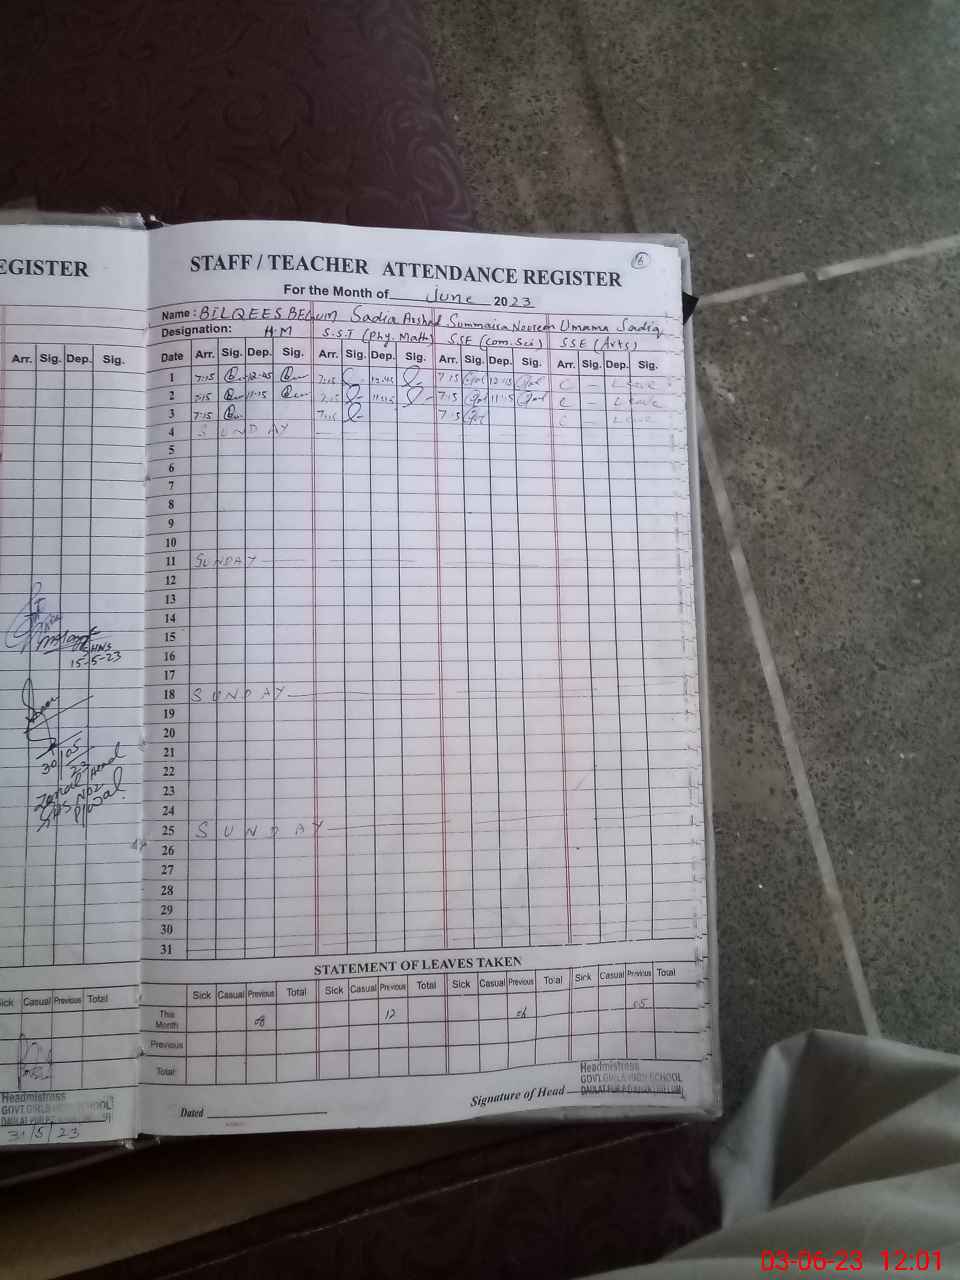 EGISTER
Arr. Sig. Dep. Sig.
15-5-23
30/05/23
Sick Casual Previous Total
Headmistress
GOVT.GIRLS HIGH SCHOOL
31/5/23
16
STAFF / TEACHER ATTENDANCE REGISTER
For the Month of June 2023
Name: BILQEES BEGUM Sadia Arshad Summaira Noreen Umama Sadiq
Designation: H.M S.S.T (Phy. Math) SSE (Com.Sci) SSE (Arts)
Date Arr. Sig. Dep. Sig. Arr. Sig. Dep. Sig. Arr. Sig. Dep. Sig. Arr. Sig. Dep. Sig.
1 7:15 12:45 7:15 12:45 7:15 12:45 C - Leave
2 7:15 11:15 7:15 11:15 7:15 11:15 C - Leave
3 7:15 7:15 7:15 C - Leave
4 SUNDAY
5
6
7
8
9
10
11 SUNDAY
12
13
14
15
16
17
18 SUNDAY
19
20
21
22
23
24
25 SUNDAY
26
27
28
29
30
31
STATEMENT OF LEAVES TAKEN
Sick Casual Previous Total Sick Casual Previous Total Sick Casual Previous Total Sick Casual Previous Total
This Month 08 12 06 05
Previous
Total
Dated
Signature of Head
Headmistress
GOVT.GIRLS HIGH SCHOOL
03-06-23 12:01